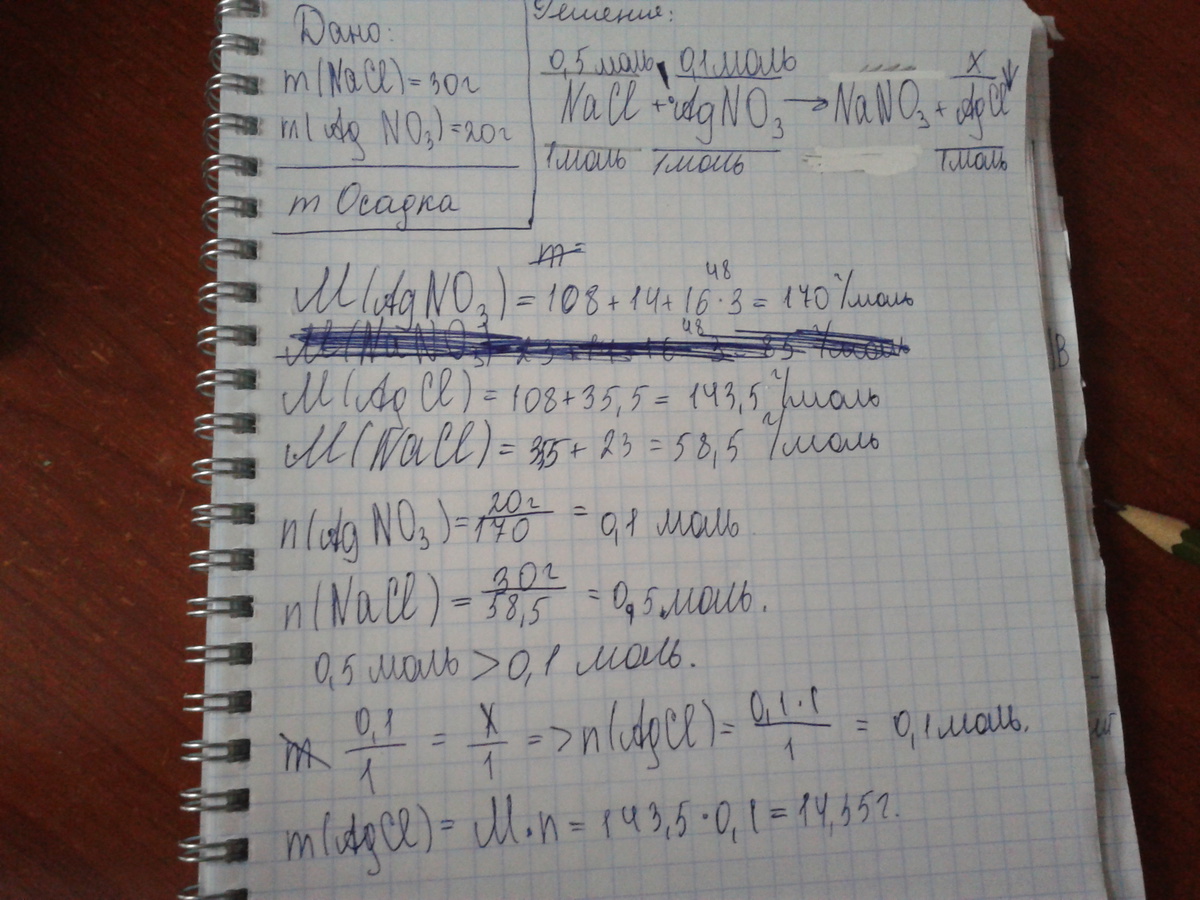 Дано:
m(NaCl)=30г
m(AgNO₃)=20г
m Осадка
Решение:
0,5 моль 0,1 моль x
NaCl + AgNO₃ → NaNO₃ + AgCl↓
1моль 1моль 1моль
m=
48
M(AgNO₃) = 108 + 14 + 16·3 = 170 г/моль
M(AgCl) = 108 + 35,5 = 143,5 г/моль
M(NaCl) = 35,5 + 23 = 58,5 г/моль
n(AgNO₃) = 20г/170 = 0,1 моль
n(NaCl) = 30г/58,5 = 0,5 моль.
0,5 моль > 0,1 моль.
m 0,1/1 = x/1 => n(AgCl) = 0,1·1/1 = 0,1 моль.
m(AgCl) = M·n = 143,5·0,1 = 14,35г.